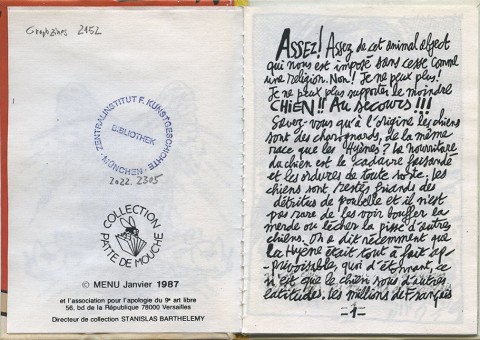 Graphzines 2152
ZENTRALINSTITUT F. KUNSTGESCHICHTE
BIBLIOTHEK
·MÜNCHEN·
2022. 2305
COLLECTION
PATTE DE MOUCHE
© MENU Janvier 1987
et l'association pour l'apologie du 9e art libre
56, bd de la République 78000 Versailles
Directeur de collection STANISLAS BARTHELEMY
ASSEZ! Assez de cet animal abject
qui nous est imposé sans cesse comme
une religion. Non! Je ne peux plus!
Je ne peux plus supporter le moindre
CHIEN!! AU SECOURS!!!
Savez-vous qu'à l'origine les chiens
sont des charognards, de la même
race que les Hyènes? La nourriture
du chien est le cadavre faisandé
et les ordures de toute sorte; les
chiens sont restés friands des
détritus de poubelle et il n'est
pas rare de les voir bouffer la
merde ou lécher la pisse d'autres
chiens. On a dit récemment que
la Hyène était tout à fait ap-
-privoisable, quoi d'étonnant, ce
n'est que le chien sous d'autres
latitudes. Les millions de Français
-1-